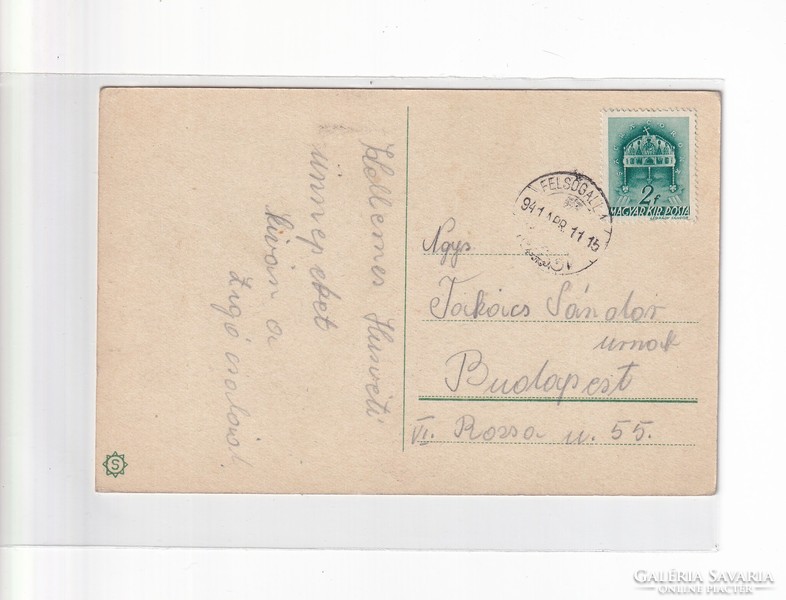 Kellemes Husvéti
ünnepeket
kiván a
Zsigó család
MAGYAR KIR. POSTA
2f
FELSŐGALLA
941 APR. 11 15
Ngys
Takács Sándor
urnak
Budapest
VI. Rozsa u. 55.
S
GALÉRIA SAVARIA
ONLINE PIACTÉR